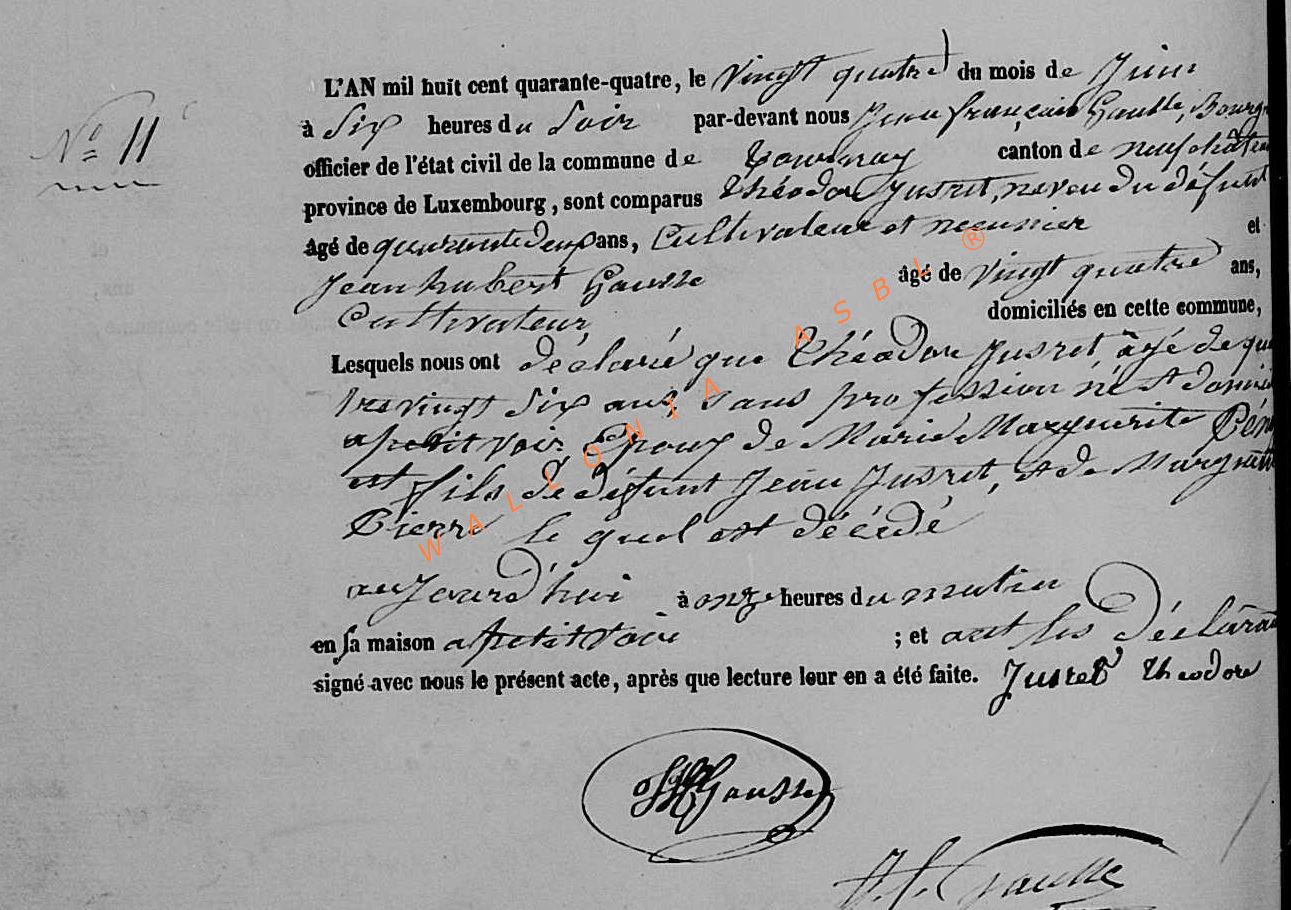 N° 11
L'AN mil huit cent quarante-quatre, le vingt quatre du mois de Juin
à Six heures du Soir par-devant nous Jean françois Gausse, Bourg
officier de l'état civil de la commune de Tournay canton de neufchâteau
province de Luxembourg, sont comparus Théodore Jusret, neveu du défunt
âgé de quarante deux ans, Cultivateur et meunier et
Jean hubert Gausse âgé de vingt quatre ans,
Cultivateur domiciliés en cette commune,
Lesquels nous ont déclaré que Théodore Jusret, âgé de qua
tre vingt Six ans sans profession né et domici
a petit voir, Epoux de Marie Marguerite
est fils de défunt Jean Jusret, et de Marguerite
Pierre le quel est décédé
aujourd'hui à onze heures du matin
en sa maison a petit voir ; et ont les déclarant
signé avec nous le présent acte, après que lecture leur en a été faite. Jusret Theodore
JH Gausse
J. f. Gausse
WALLONIA ASBL ®